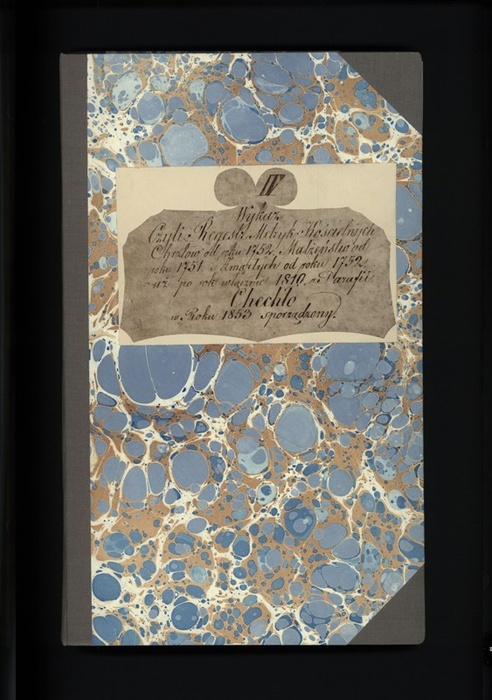 IV
Wykaz
Czyli Regestr Metryk Kościelnych
Chrztów od roku 1752. Małżeństw od
roku 1751 i Zmarłych od roku 1752
aż po rok włącznie 1810. w Parafii
Chechło
w Roku 1853 sporządzony.